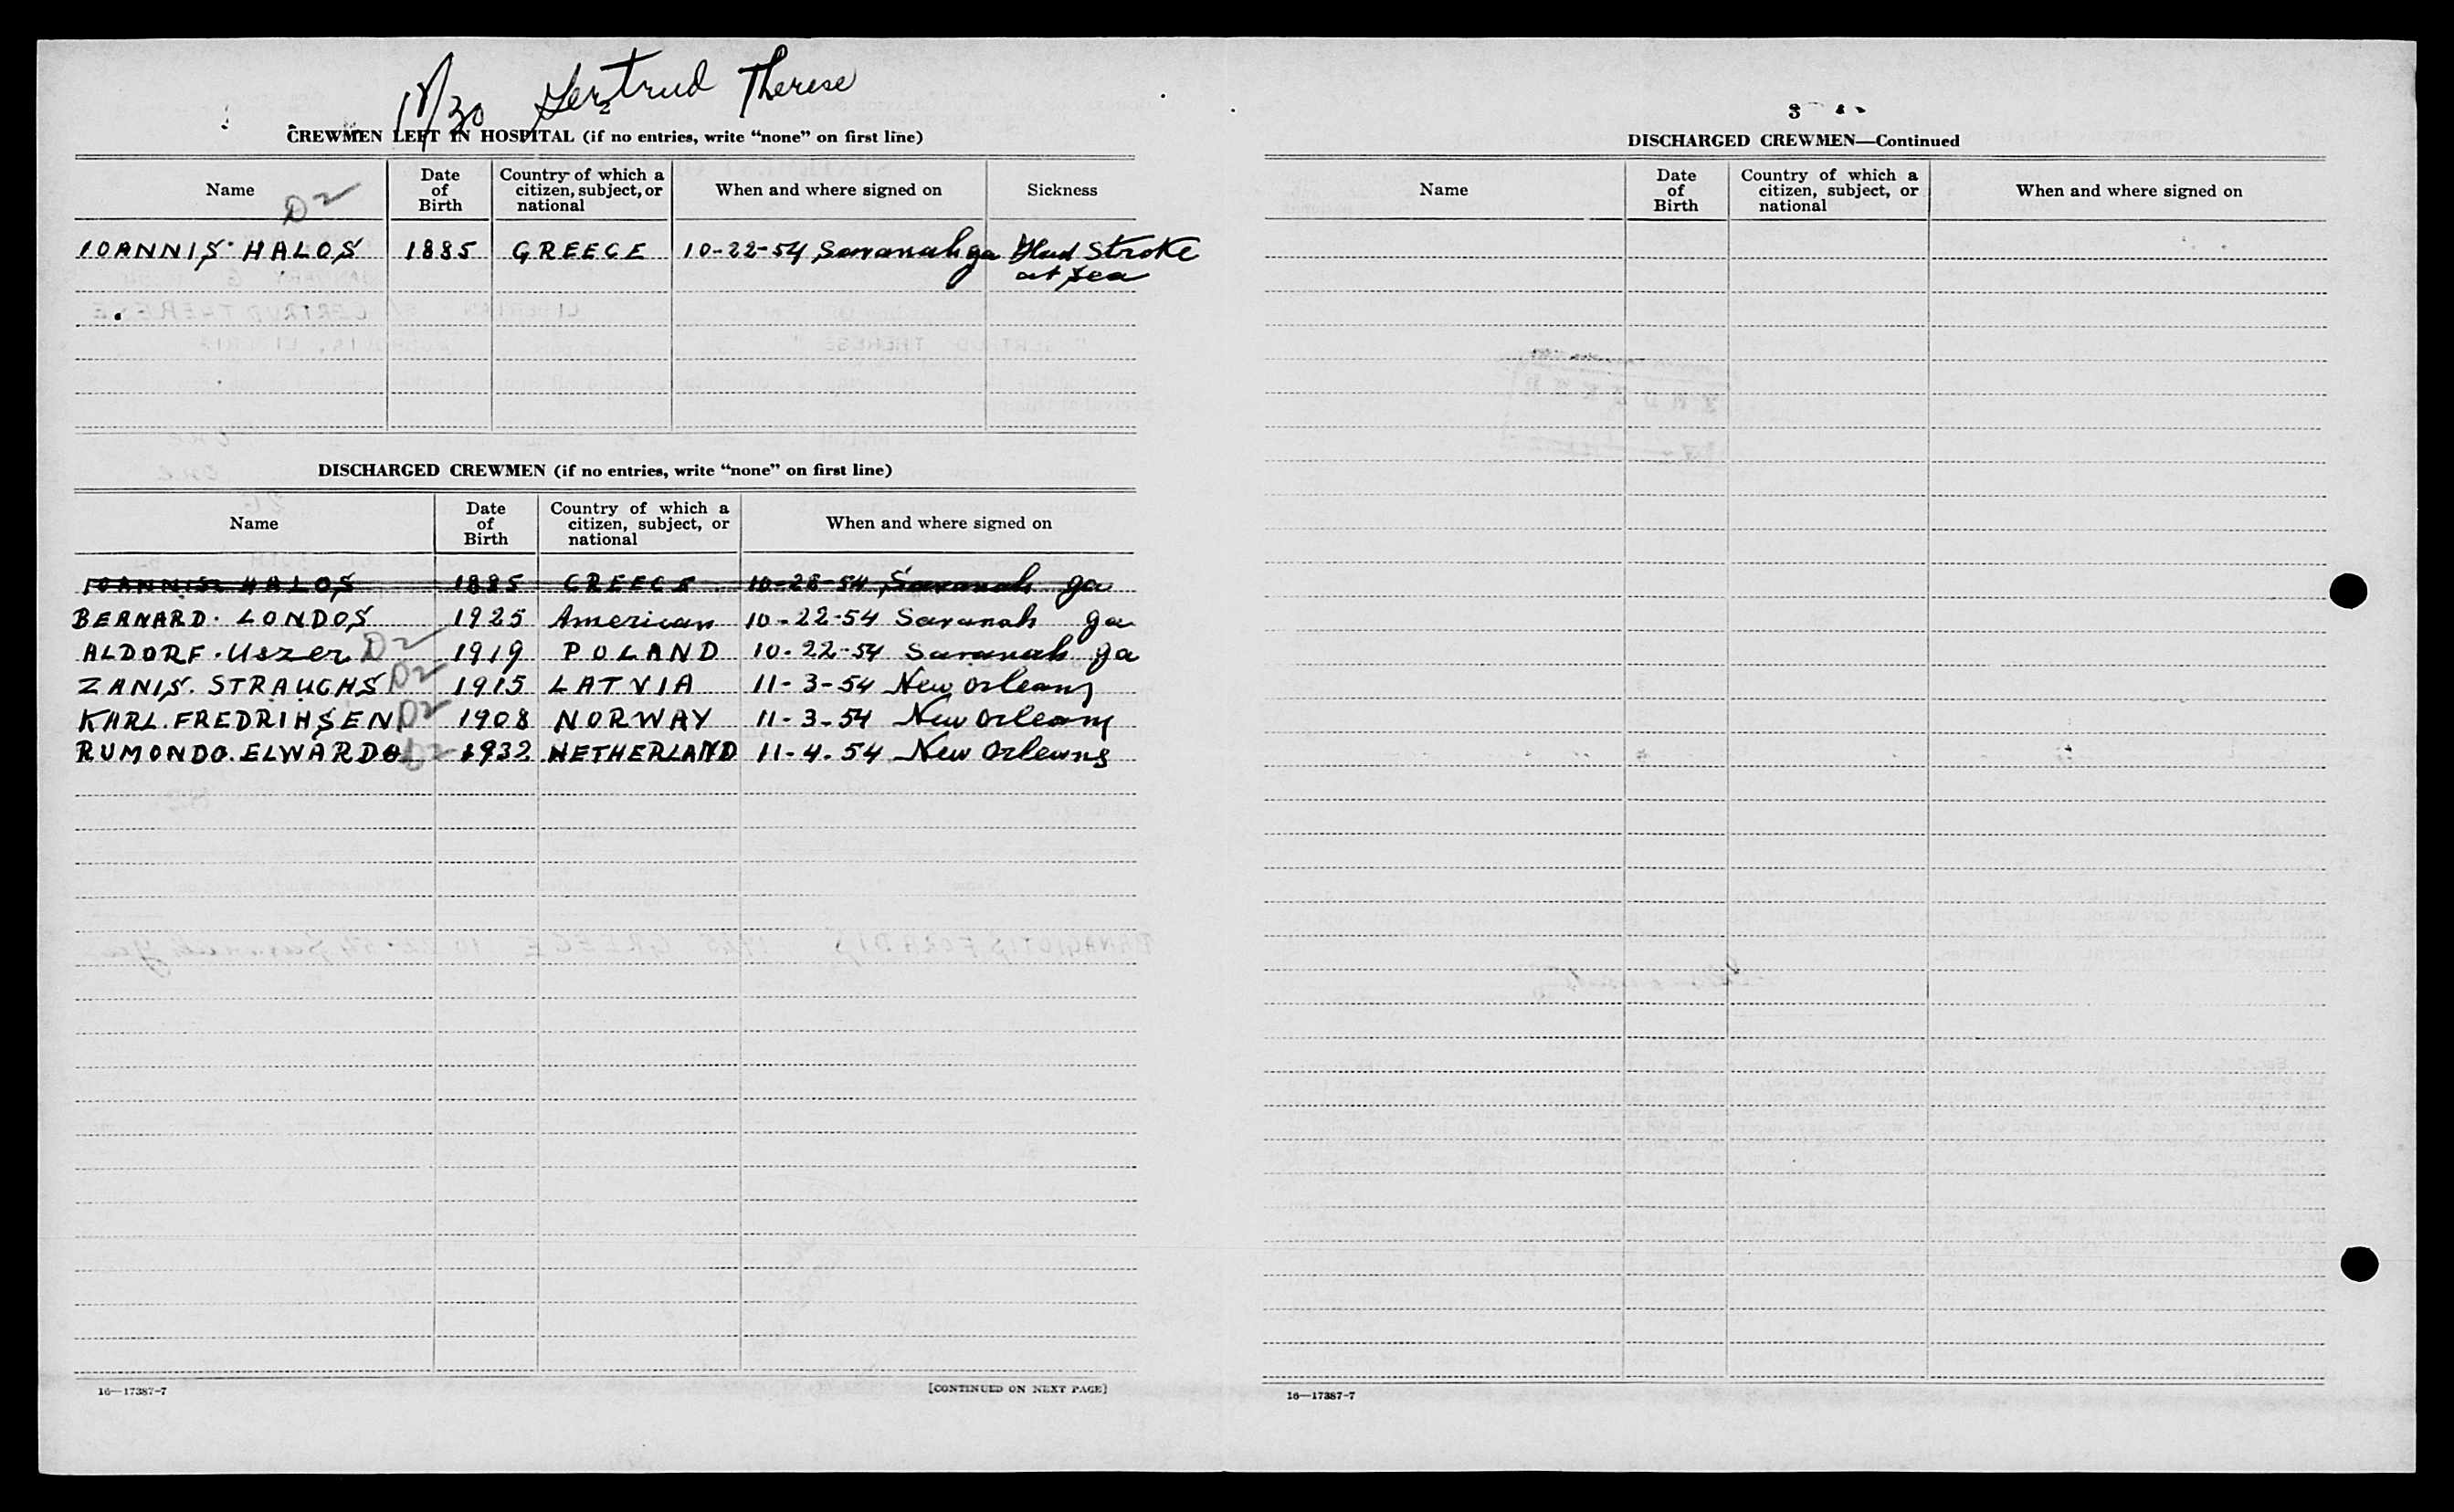 Gertrud Therese
2
CREWMEN LEFT IN HOSPITAL (if no entries, write “none” on first line)
Name Date of Birth Country of which a citizen, subject, or national When and where signed on Sickness
D2
IOANNIS HALOS 1885 GREECE 10-22-54 Savanah ga Stroke
at sea
DISCHARGED CREWMEN (if no entries, write “none” on first line)
Name Date of Birth Country of which a citizen, subject, or national When and where signed on
IOANNIS HALOS 1885 GREECE Savanah ga
BERNARD. LONDOS 1925 American 10-22-54 Savanah ga
ALDORF. Uszer D2 1919 POLAND 10-22-54 Savanah ga
ZANIS. STRAUCHS D2 1915 LATVIA 11-3-54 New Orleans
KARL. FREDRIHSEN D2 1908 NORWAY 11-3-54 New Orleans
RUMONDO. ELWARDO D2 1932 NETHERLAND 11-4-54 New Orleans
16—17387-7 [CONTINUED ON NEXT PAGE]
3
DISCHARGED CREWMEN—Continued
Name Date of Birth Country of which a citizen, subject, or national When and where signed on
16—17387-7